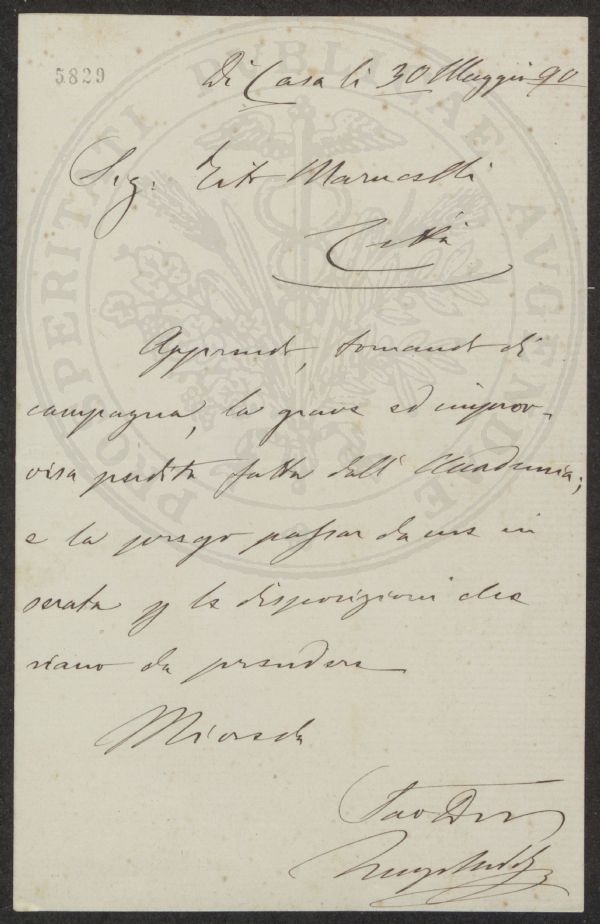 5829
Di Casa li 30 Maggio 90
Sig. Tito Marucelli
Città
Apprendo, tornando di
campagna, la grave ed improv-
visa perdita fatta dall' Accademia;
e la prego passar da me in
serata p le disposizioni che
siano da prendere
Mi creda
Suo Dev
PROSPERITATI PUBLICAE AUGENDAE